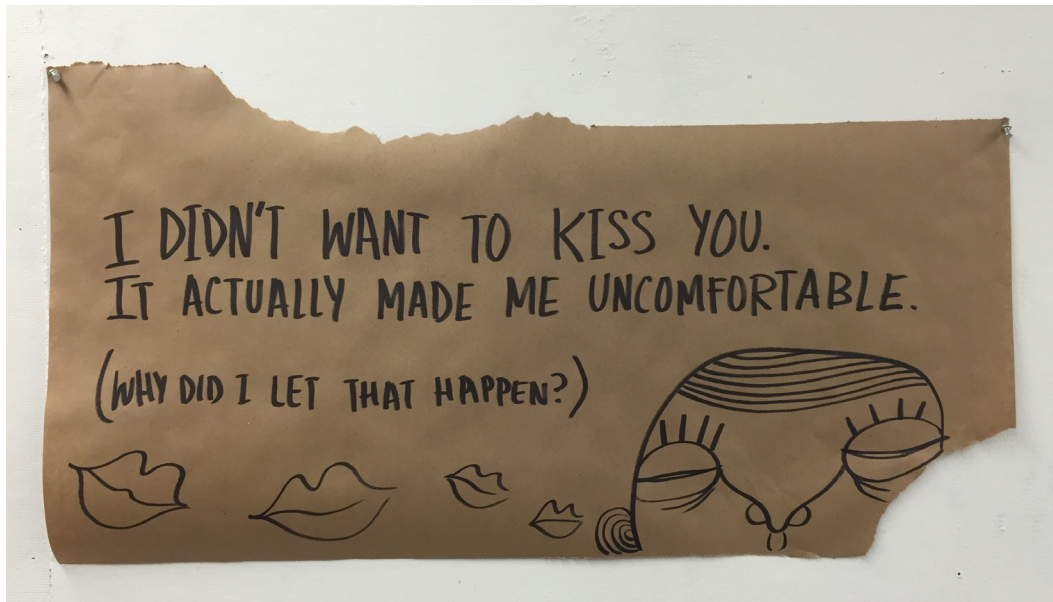 I DIDN'T WANT TO KISS YOU.
IT ACTUALLY MADE ME UNCOMFORTABLE.
(WHY DID I LET THAT HAPPEN?)